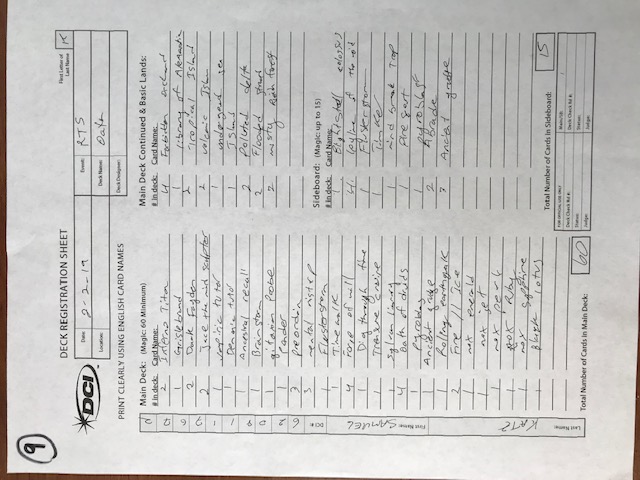 9
DECK REGISTRATION SHEET
First Letter of Last Name K
DCI
Date: 2-2-19
Event: RTS
Location:
Deck Name: Oath
Deck Designer:
PRINT CLEARLY USING ENGLISH CARD NAMES
Main Deck: (Magic: 60 Minimum)
# in deck: Card Name:
2 Inferno Titan
1 Griselbrand
2 Dack Fayden
2 Jace the mind sculptor
1 vampiric tutor
1 Demonic tutor
1 Ancestral recall
1 Brainstorm
1 gitaxian Probe
1 Ponder
3 Preordain
3 mental misstep
1 Flusterstorm
1 Time walk
4 Force of will
1 Dig through time
1 Treasure cruise
1 Sylvan library
4 Oath of druids
1 Pyroblast
1 Ancient grudge
1 Rolling earthquake
2 Fire // Ice
1 mox emerald
1 mox jet
1 mox pearl
1 mox Ruby
1 mox sapphire
1 Black lotus
Total Number of Cards in Main Deck: 60
Main Deck Continued & Basic Lands:
# in deck: Card Name:
4 Forbidden orchard
1 library of Alexandria
2 Tropical Island
2 volcanic Islan
1 underground sea
1 Island
2 Polluted delta
2 Flooded strand
2 misty Rain forest
Sideboard: (Magic: up to 15)
# in deck: Card Name:
1 Blightsteel colossus
4 leyline of the void
1 Flusterstorm
1 Tinker
1 mind break Trap
1 pyroblast
2 Abrade
3 Ancient grudge
Total Number of Cards in Sideboard: 15
FOR OFFICIAL USE ONLY
Main/SB:
Deck Check Rd #:
Deck Check Rd #:
Status:
Status:
Judge:
Judge:
Last Name: KATZ
First Name: SAMUEL
DCI #: